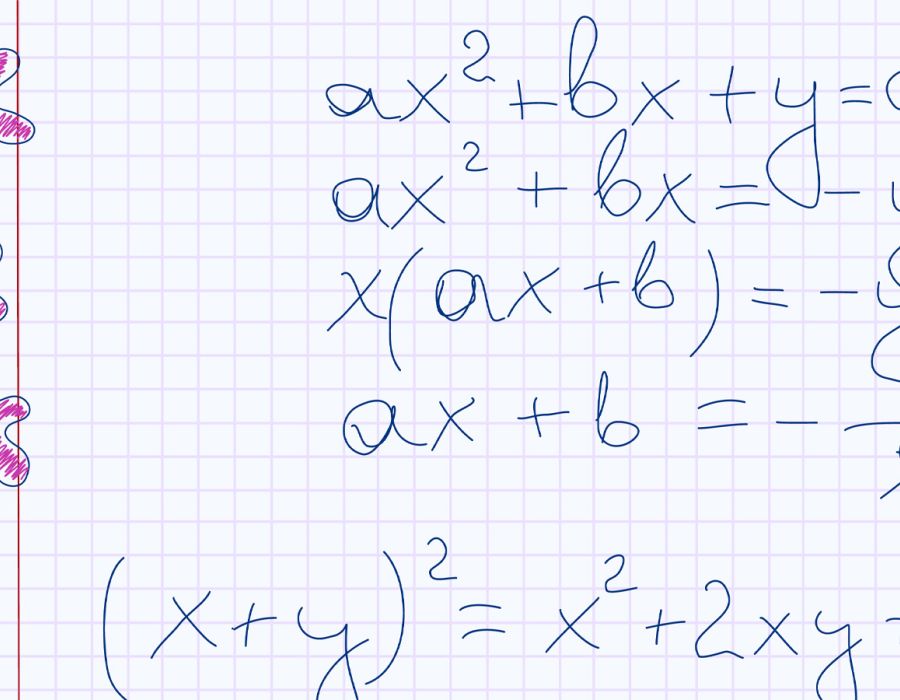 ax² + bx + y =
ax² + bx = -
x(ax + b) = -
ax + b = -
(x + y)² = x² + 2xy